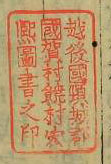 越後國頸城郡
國賀村饒村家
熈圖書之印